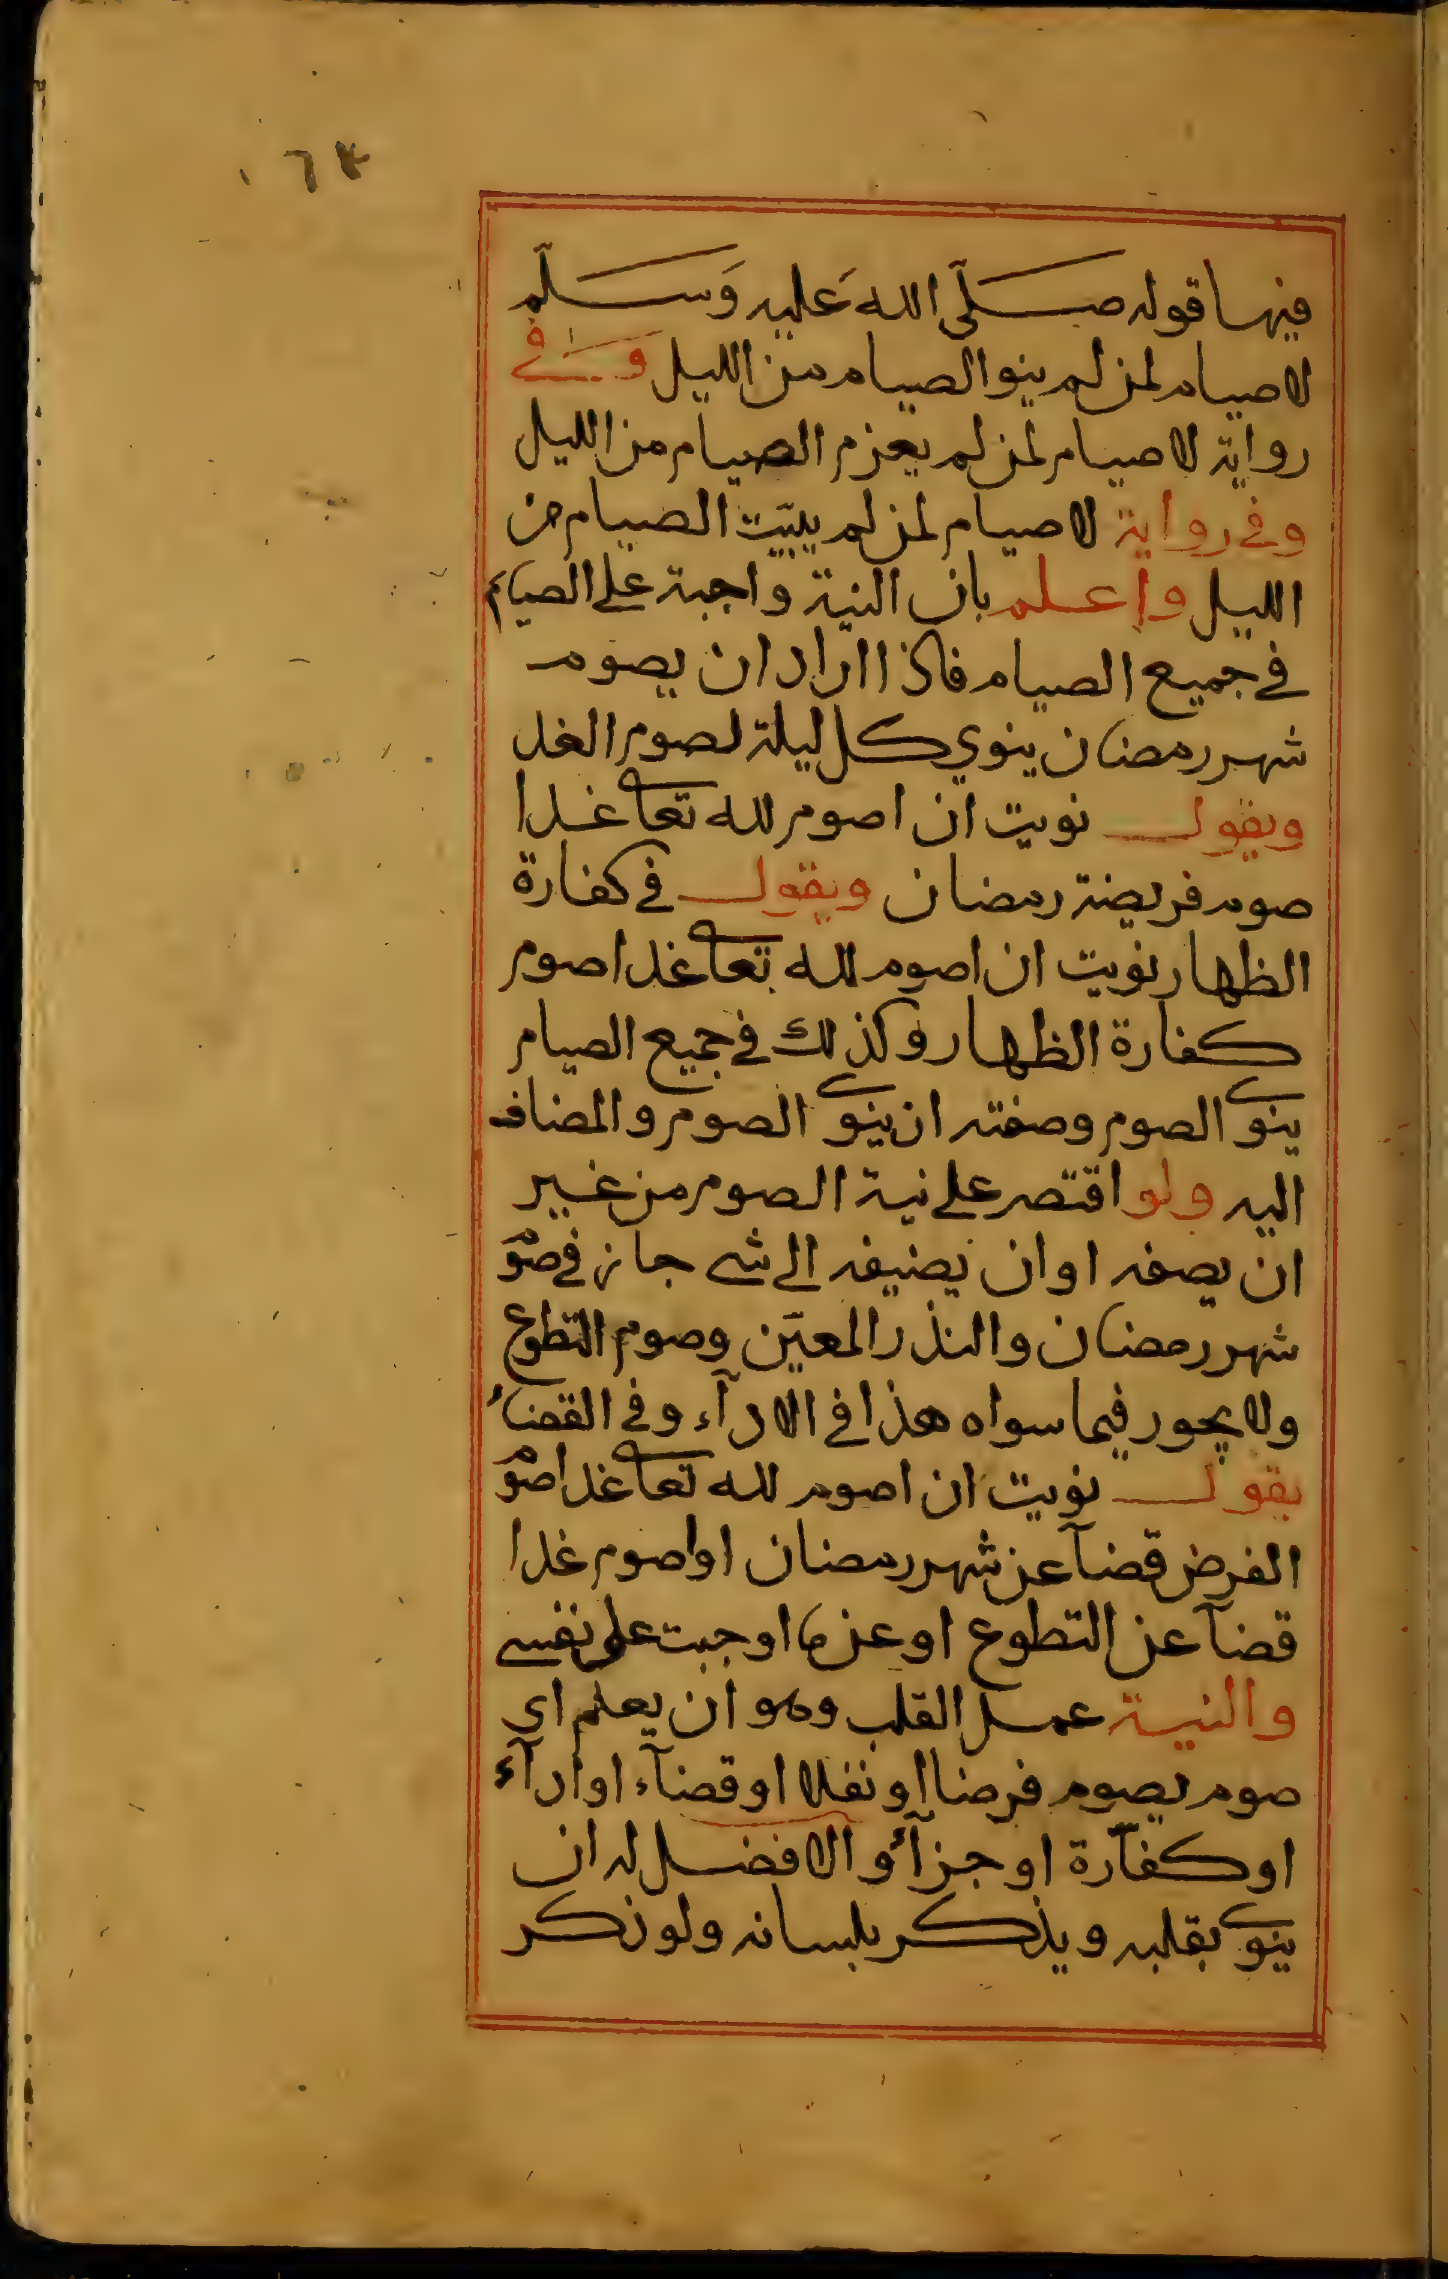 ١٦٤
فيها قوله صلى الله عليه وسلم
لا صيام لمن لم ينو الصيام من الليل وفي
رواية لا صيام لمن لم يعزم الصيام من الليل
وفي رواية لا صيام لمن لم يبيّت الصيام من
الليل واعلم بان النية واجبة على الصيام
في جميع الصيام فاذا اراد ان يصوم
شهر رمضان ينوي كل ليلة لصوم الغد
ويقول نويت ان اصوم لله تعا غدا
صوم فريضة رمضان ويقول في كفارة
الظهار نويت ان اصوم لله تعا غدا صوم
كفارة الظهار وكذلك في جميع الصيام
ينوي الصوم وصفته ان ينوي الصوم والمضاف
اليه ولو اقتصر على نية الصوم من غير
ان يصفه او ان يضيفه الى شي جاز في صوم
شهر رمضان والنذر المعيّن وصوم التطوع
ولا يجوز فيما سواه هذا في الادآء وفي القضاء
يقول نويت ان اصوم لله تعا غدا صوم
الفرض قضآ عن شهر رمضان او اصوم غدا
قضآ عن التطوع او عن ما اوجبت على نفسي
والنية عمل القلب وهو ان يعلم اي
صوم يصوم فرضا او نفلا او قضآء او ادآء
او كفارة او جزآء والافضل له ان
ينوي بقلبه ويذكر بلسانه ولو ذكر